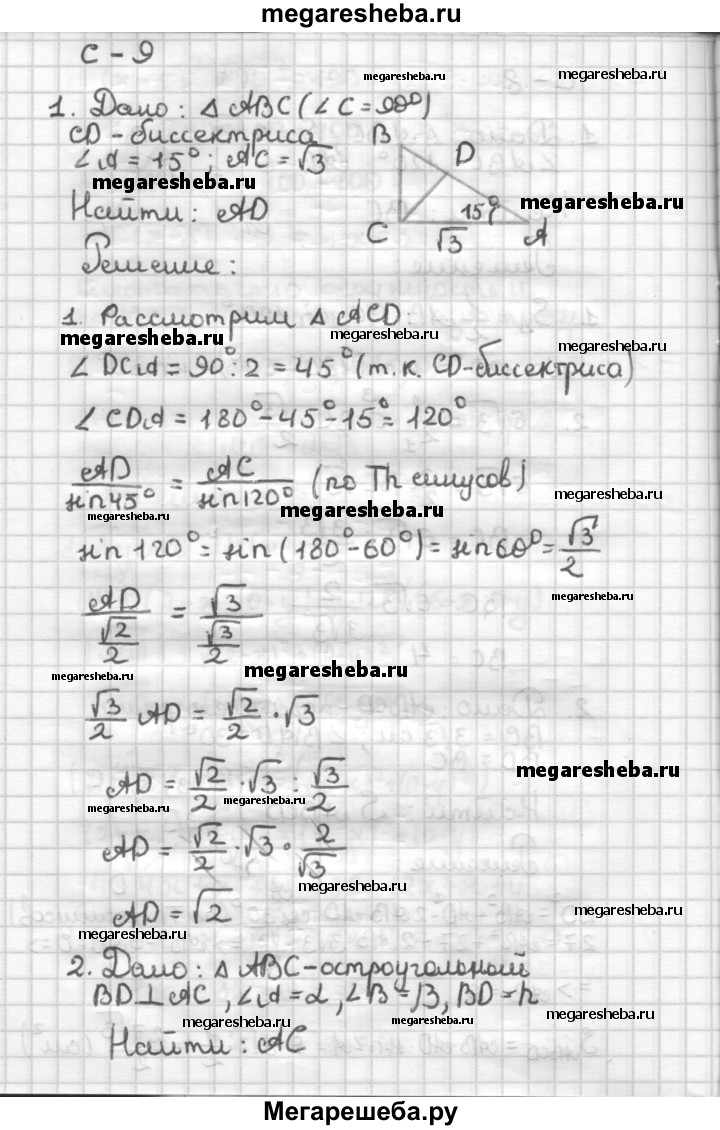 megaresheba.ru
С - 9
megaresheba.ru
1. Дано: △ ABC (∠C = 90°)
CD - биссектриса
∠A = 15°; AC = √3
megaresheba.ru
B
D
15°
C
√3
A
megaresheba.ru
Найти: AD
Решение:
1. Рассмотрим △ ACD:
megaresheba.ru
megaresheba.ru
megaresheba.ru
∠ DCA = 90° : 2 = 45° (т.к. CD-биссектриса)
∠ CDA = 180° - 45° - 15° = 120°
AD/sin45° = AC/sin120° (по Th синусов)
megaresheba.ru
megaresheba.ru
megaresheba.ru
sin 120° = sin (180° - 60°) = sin 60° = √3/2
megaresheba.ru
AD/(√2/2) = √3/(√3/2)
megaresheba.ru
megaresheba.ru
√3/2 AD = √2/2 · √3
megaresheba.ru
AD = √2/2 · √3 : √3/2
megaresheba.ru
megaresheba.ru
AD = √2/2 · √3 · 2/√3
megaresheba.ru
AD = √2
megaresheba.ru
megaresheba.ru
2. Дано: △ ABC - остроугольный
BD ⊥ AC, ∠A = α, ∠B = β, BD = h
megaresheba.ru
megaresheba.ru
megaresheba.ru
Найти: AC
Мегарешеба.ру